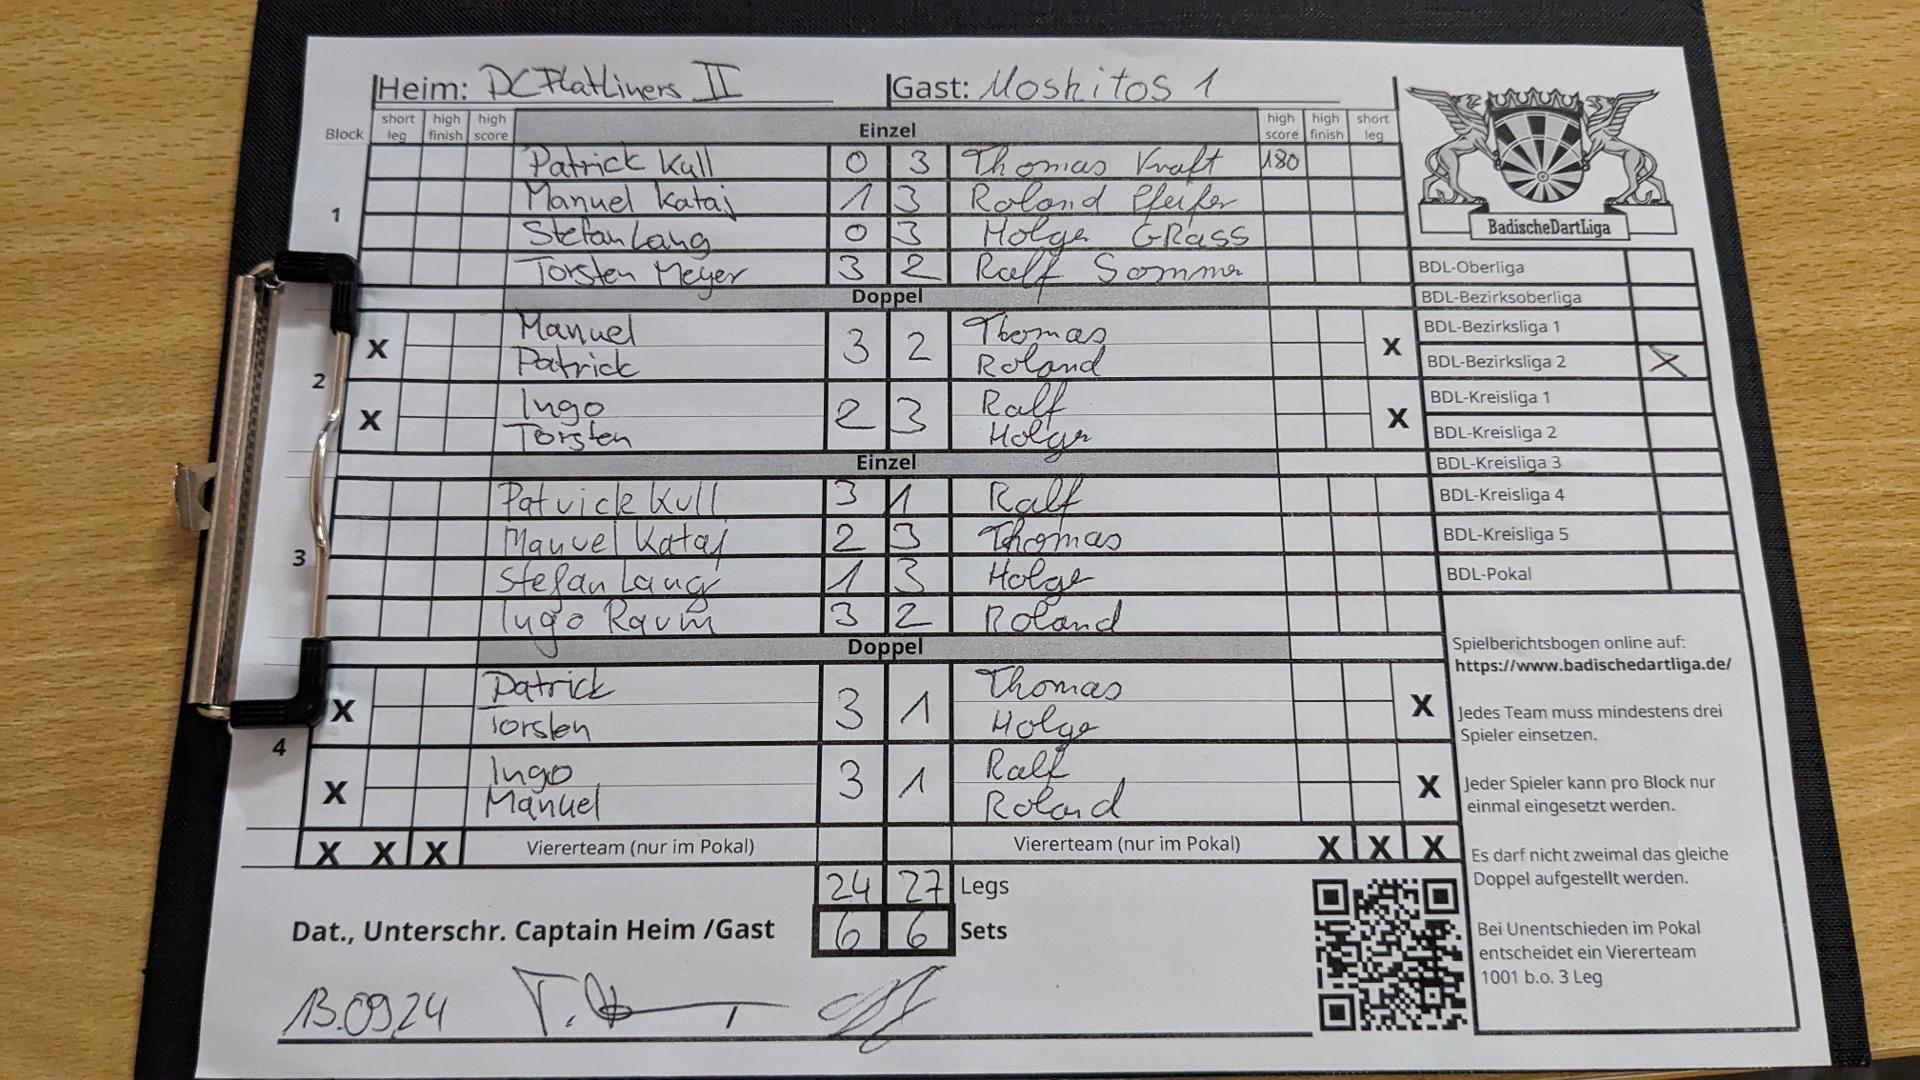 Heim: DC Flatliners II Gast: Moskitos 1
Block short leg high finish high score Einzel high score high finish short leg
1
Patrick Kull 0 3 Thomas Kraft 180
Manuel Kataj 1 3 Roland Pfeifer
Stefan Lang 0 3 Holger GRASS
Torsten Meyer 3 2 Ralf Sommer
Doppel
2
X Manuel 3 2 Thomas X
Patrick Roland
X Ingo 2 3 Ralf X
Torsten Holger
Einzel
3
Patrick Kull 3 1 Ralf
Manuel Kataj 2 3 Thomas
Stefan Lang 1 3 Holger
Ingo Raum 3 2 Roland
Doppel
4
X Patrick 3 1 Thomas X
Torsten Holger
X Ingo 3 1 Ralf X
Manuel Roland
X X X Viererteam (nur im Pokal) Viererteam (nur im Pokal) X X X
24 27 Legs
Dat., Unterschr. Captain Heim /Gast 6 6 Sets
13.09.24
BadischeDartLiga
BDL-Oberliga
BDL-Bezirksoberliga
BDL-Bezirksliga 1
BDL-Bezirksliga 2 X
BDL-Kreisliga 1
BDL-Kreisliga 2
BDL-Kreisliga 3
BDL-Kreisliga 4
BDL-Kreisliga 5
BDL-Pokal
Spielberichtsbogen online auf:
https://www.badischedartliga.de/
Jedes Team muss mindestens drei
Spieler einsetzen.
Jeder Spieler kann pro Block nur
einmal eingesetzt werden.
Es darf nicht zweimal das gleiche
Doppel aufgestellt werden.
Bei Unentschieden im Pokal
entscheidet ein Viererteam
1001 b.o. 3 Leg